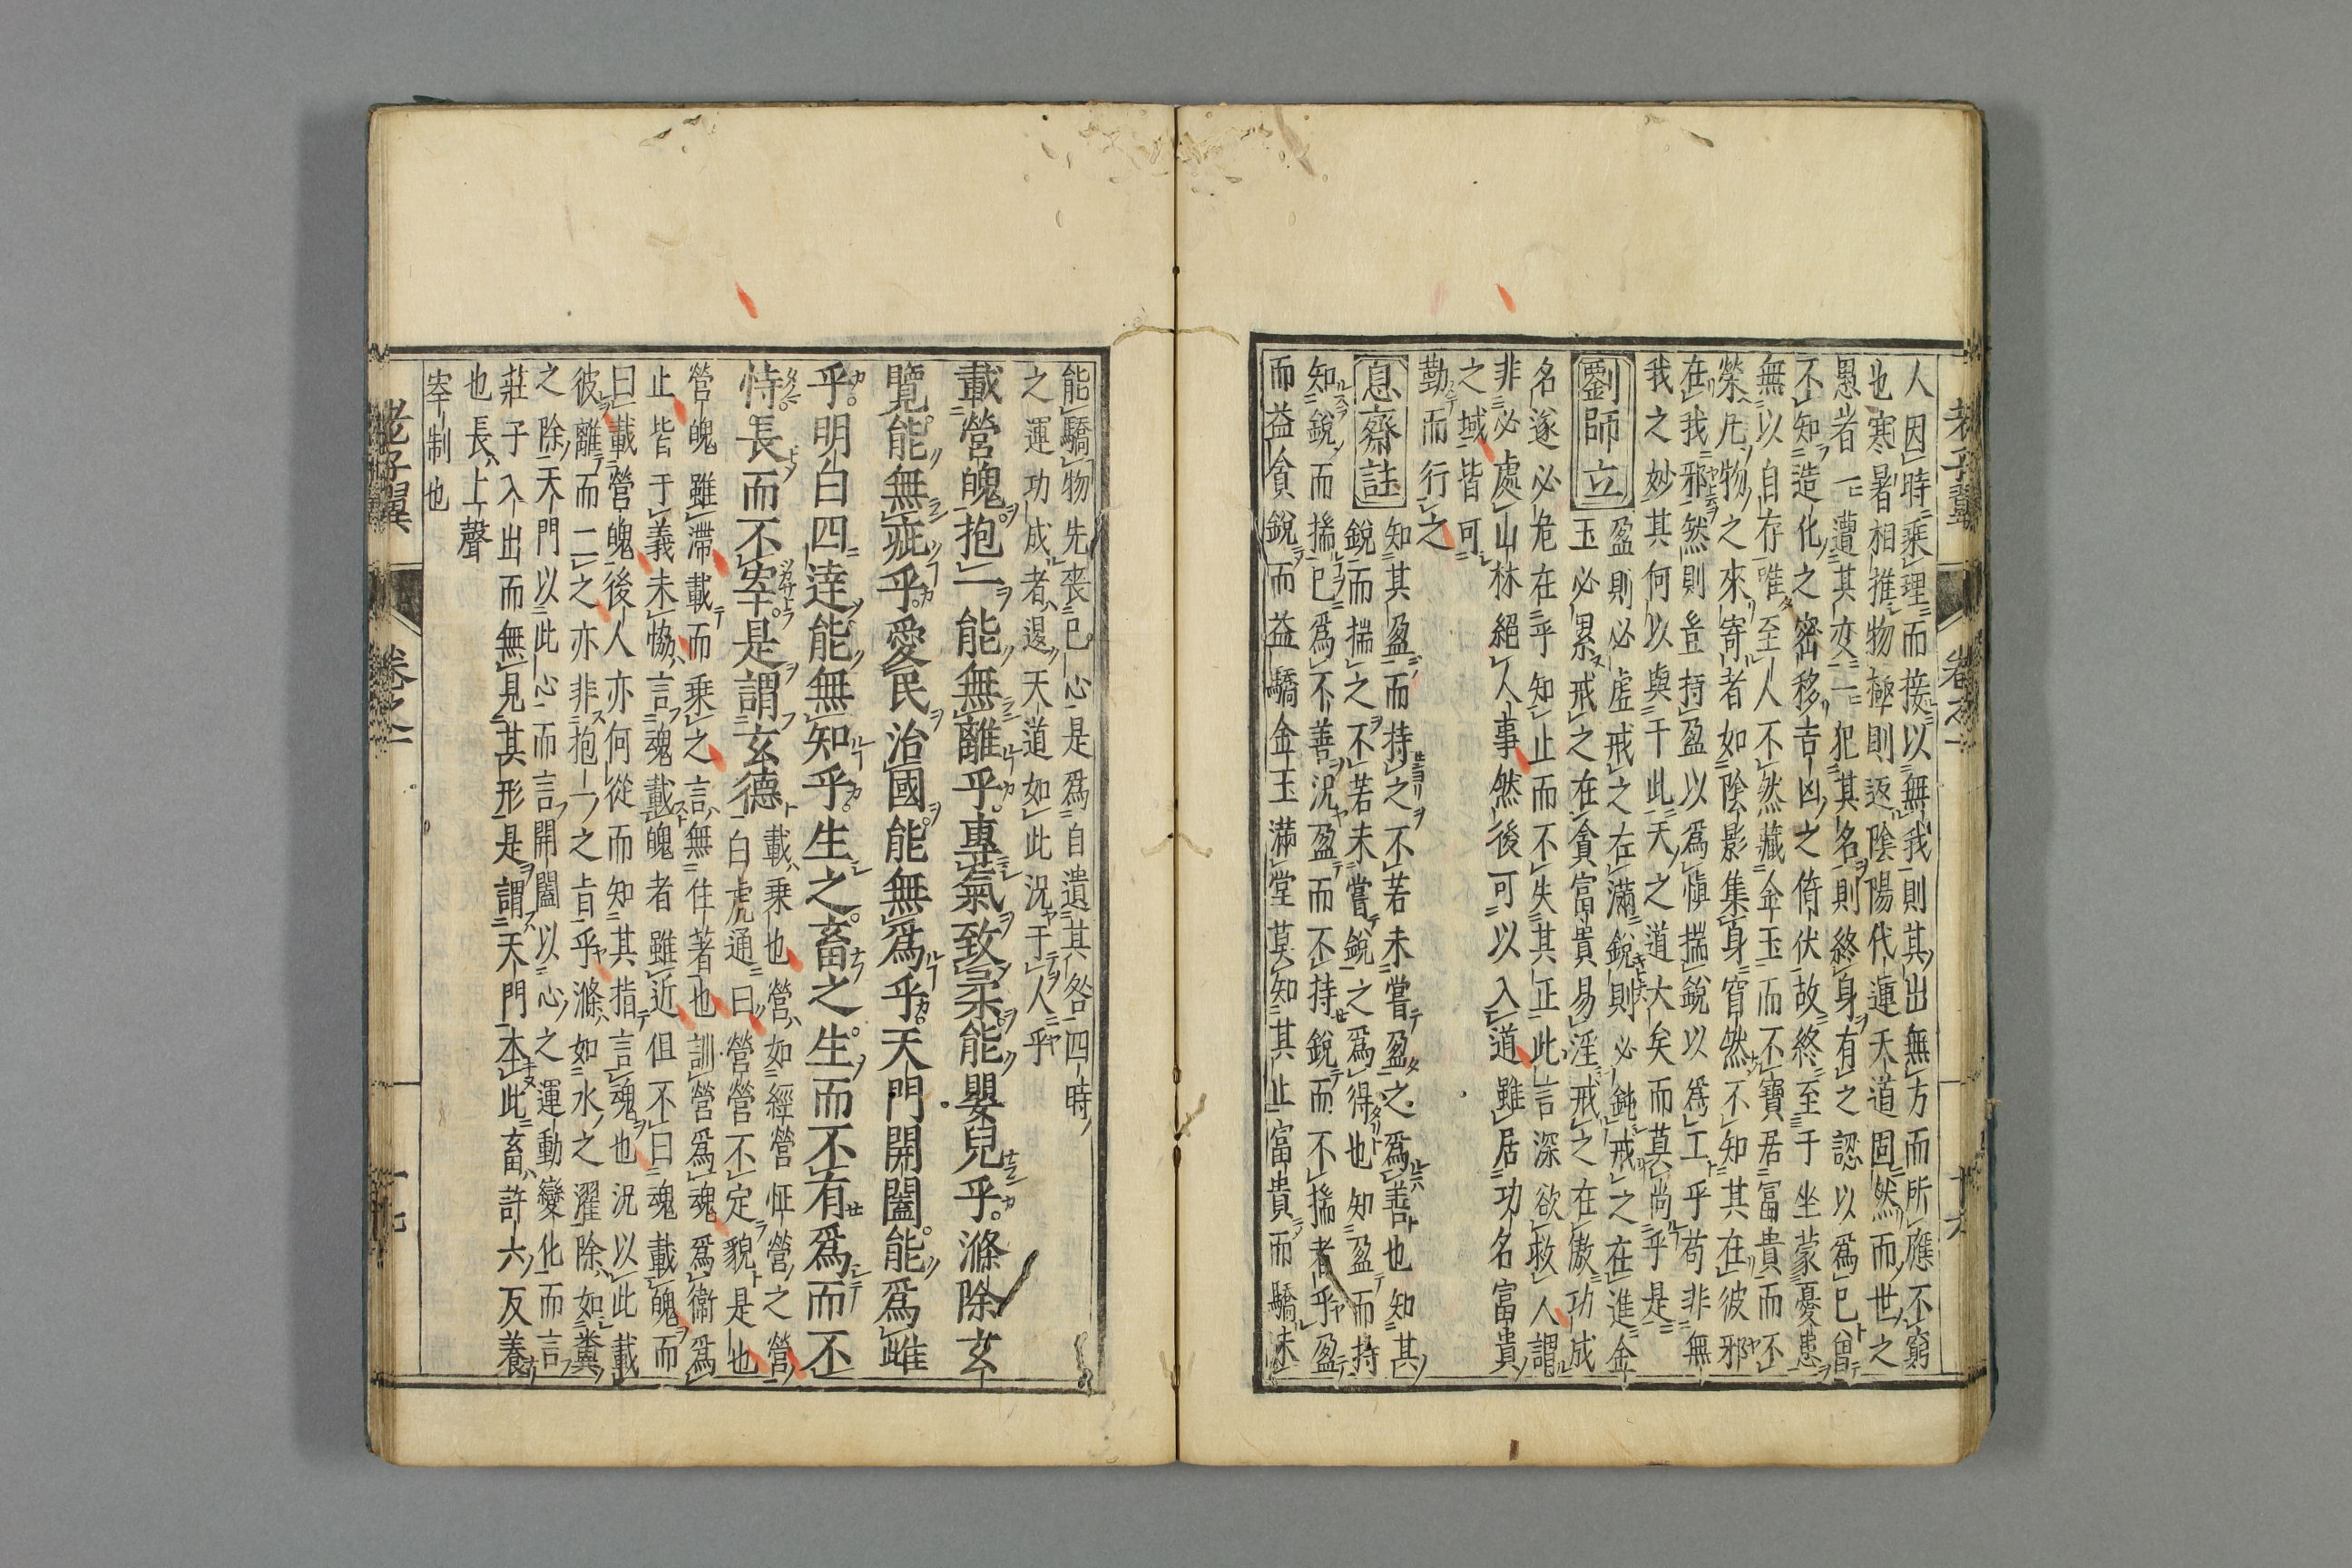 老子翼 卷之一 十六
人因時乘理而接以無我則其出無方而所應不窮
也寒暑相推物極則返陰陽代運天道固然而世之
愚者一遭其变二犯其名則終身有之認以爲已曽
不知造化之密移吉凶之倚伏故終至于坐蒙憂患
無以自存唯至人不然藏金玉而不寶居冨貴而不
榮凡物之來寄者如陰影集身窅然不知其在彼邪
在我邪然則豈持盈以爲愼揣銳以爲工乎苟非無
我之妙其何以與于此天之道大矣而莫尚乎是
劉師立 盈則必虛戒之在滿銳則必鈍戒之在進金
玉必累戒之在貪富貴易淫戒之在傲功成
名遂必危在乎知止而不失其正此言深欲救人謂
非必處山林絕人事然後可以入道雖居功名富貴
之域皆可
勤而行之
息齋註 知其盈而持之不若未嘗盈之爲善也知其
銳而揣之不若未嘗銳之爲得也知盈而持
知銳而揣已爲不善況盈而不持銳而不揣者乎盈
而益貪銳而益驕金玉滿堂莫知其止富貴而驕未
能驕物先喪已心是爲自遺其咎四時
之運功成者退天道如此況于人乎
載營魄抱一能無離乎專氣致柔能嬰兒乎滌除玄
覽能無疵乎愛民治國能無爲乎天門開闔能爲雌
乎明白四達能無知乎生之畜之生而不有爲而不
恃長而不宰是謂玄德 載乗也營如經營怔營之營
白虎通曰營營不定貌是也
營魄雖滯載而乘之言無住著也訓營爲魂爲衞爲
止皆于義未恊言魂載魄者雖近但不曰魂載魄而
曰載營魄後人亦何從而知其指言魂也況以此載
彼離而二之亦非抱一之旨乎滌如水之濯除如糞
之除天門以此心而言開闔以心之運動變化而言
莊子入出而無見其形是謂天門本此畜許六反養
也長上聲
宰制也
老子翼 卷之一 十七